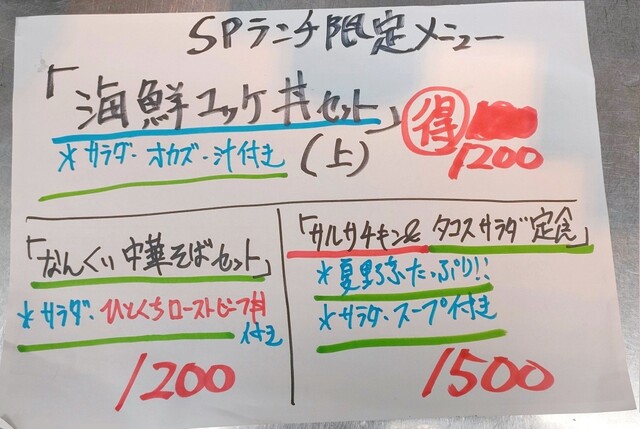 SPランチ限定メニュー
「海鮮ユッケ丼セット」(上) 得 1200
*サラダ・オカズ・汁付き
「なんくい中華そばセット」
*サラダ・ひとくちローストビーフ丼付き
1200
「サルサチキン& タコスサラダ定食」
*夏野菜たっぷり!!
*サラダ・スープ付き
1500